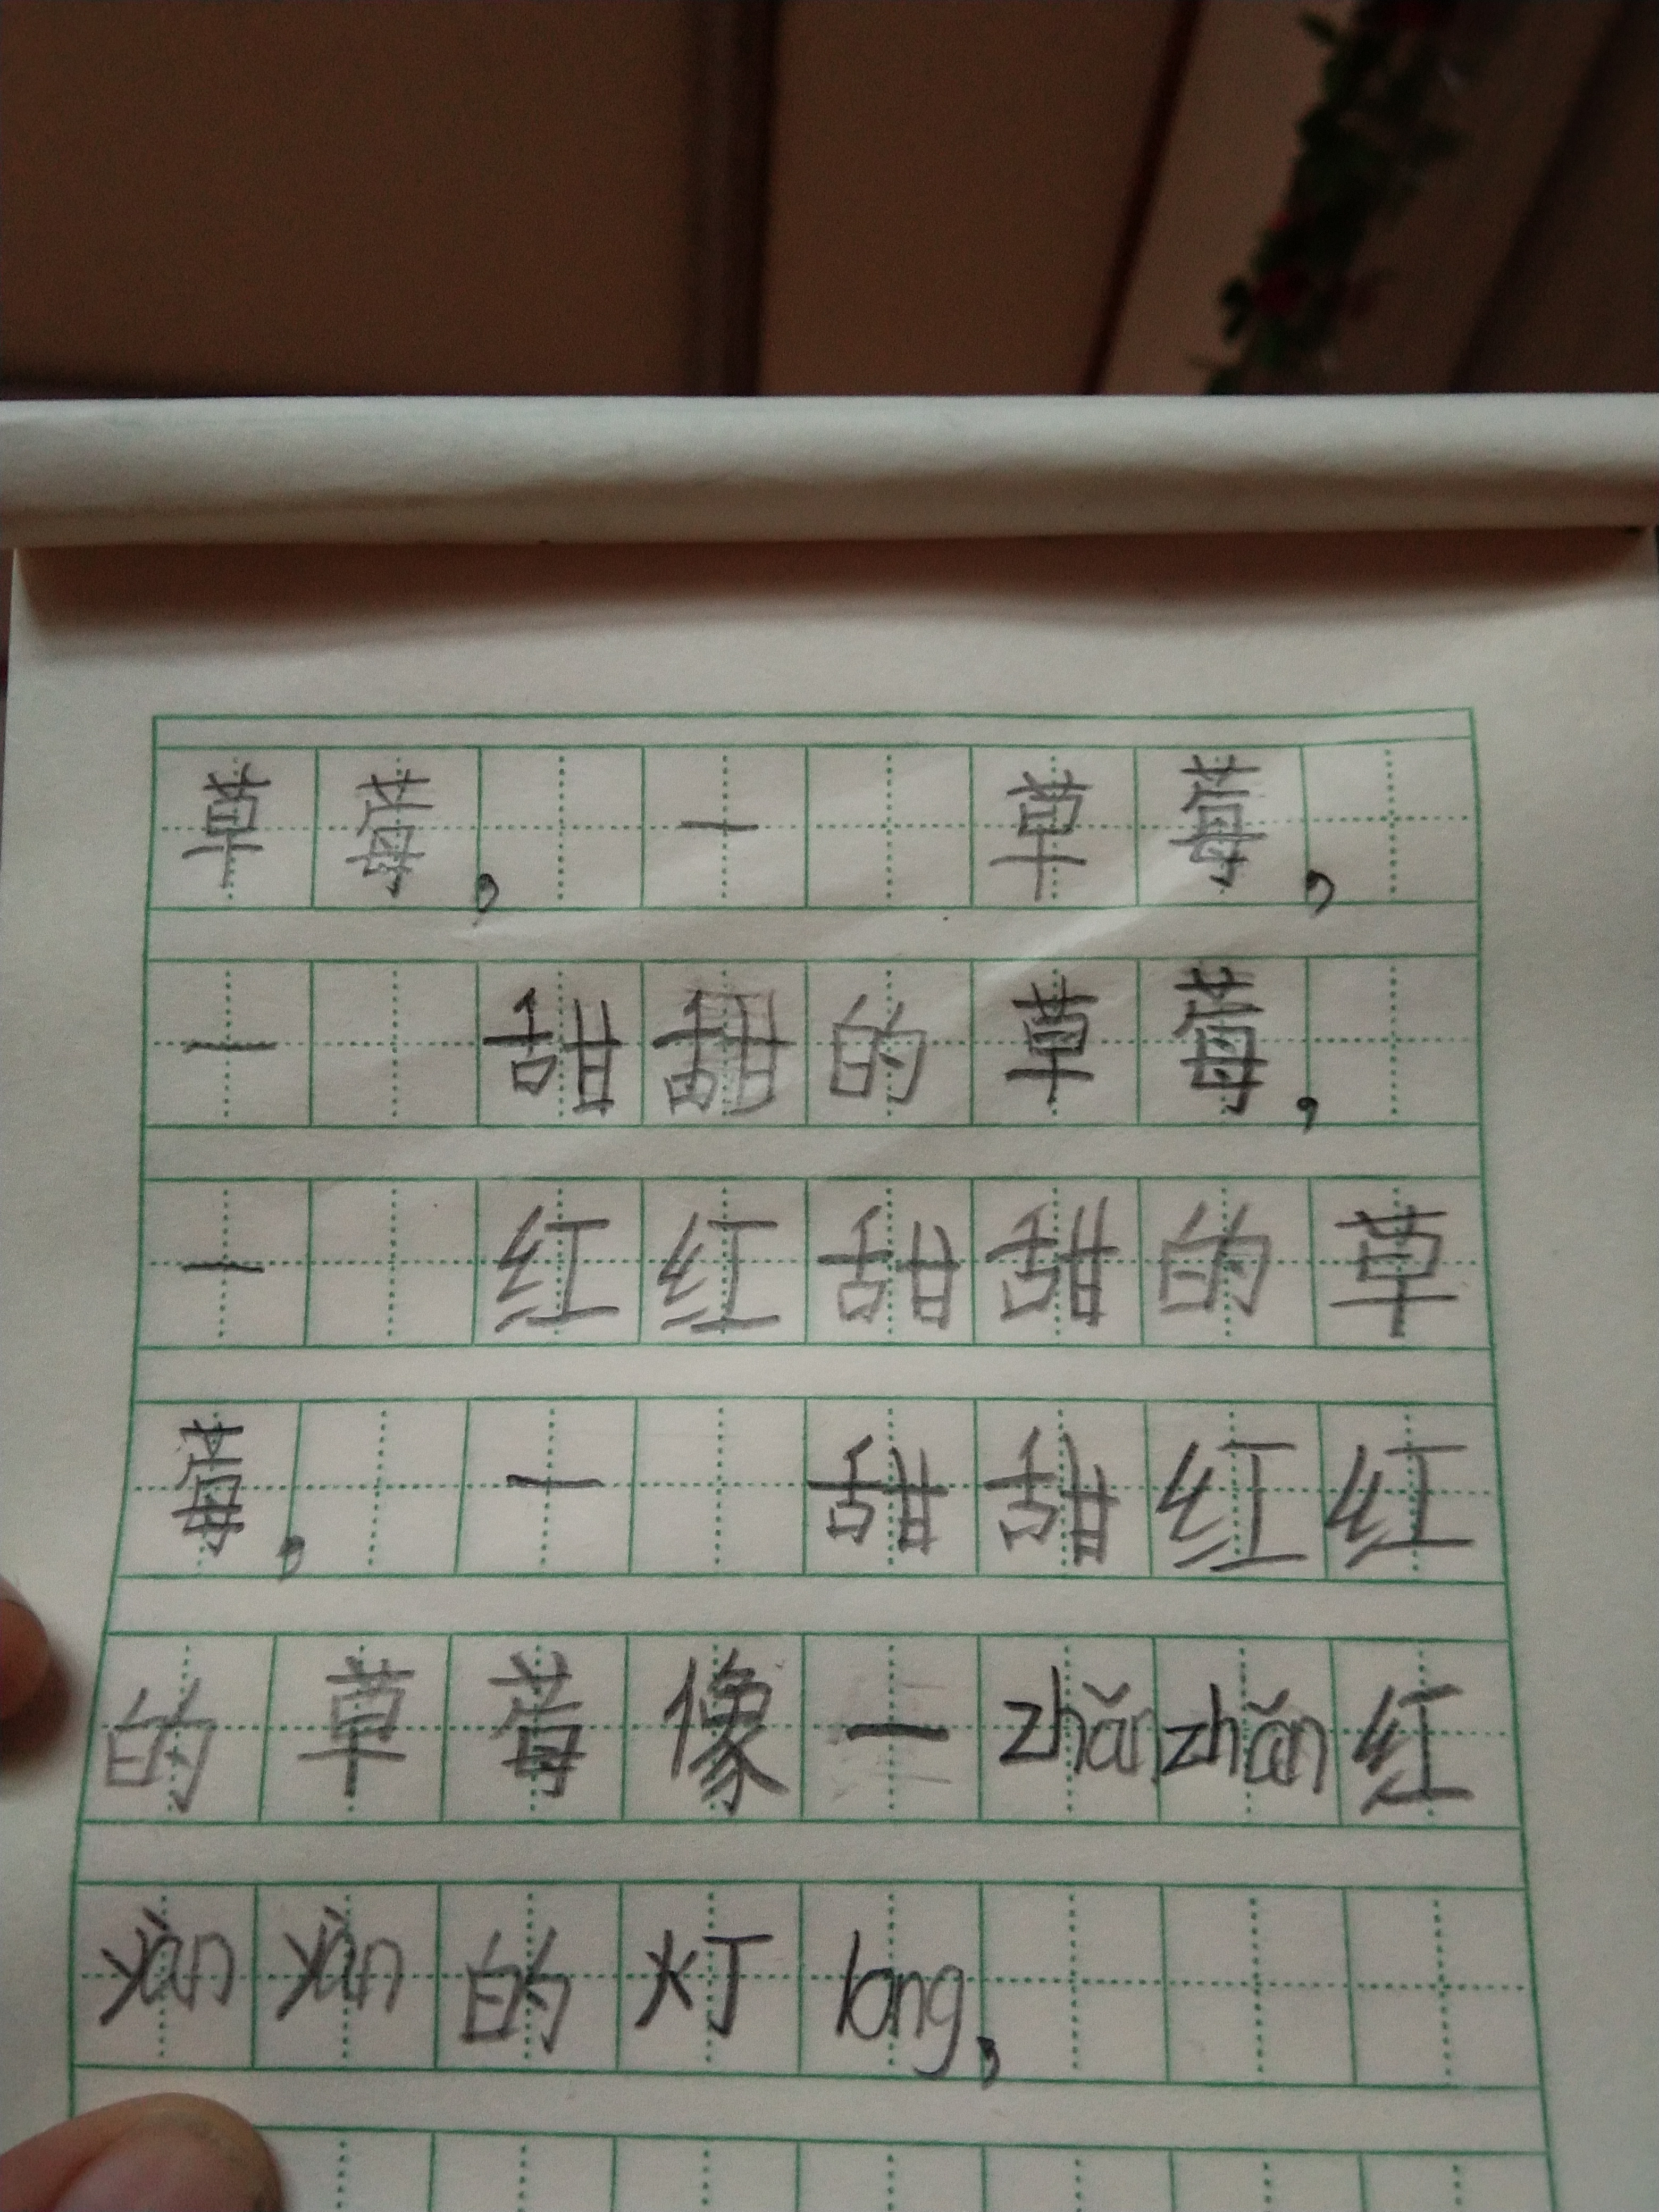 草莓，一 草莓，
一 甜甜的草莓，
一 红红甜甜的草
莓，一 甜甜红红
的草莓像一zhǎn zhǎn红
yàn yàn的灯long，